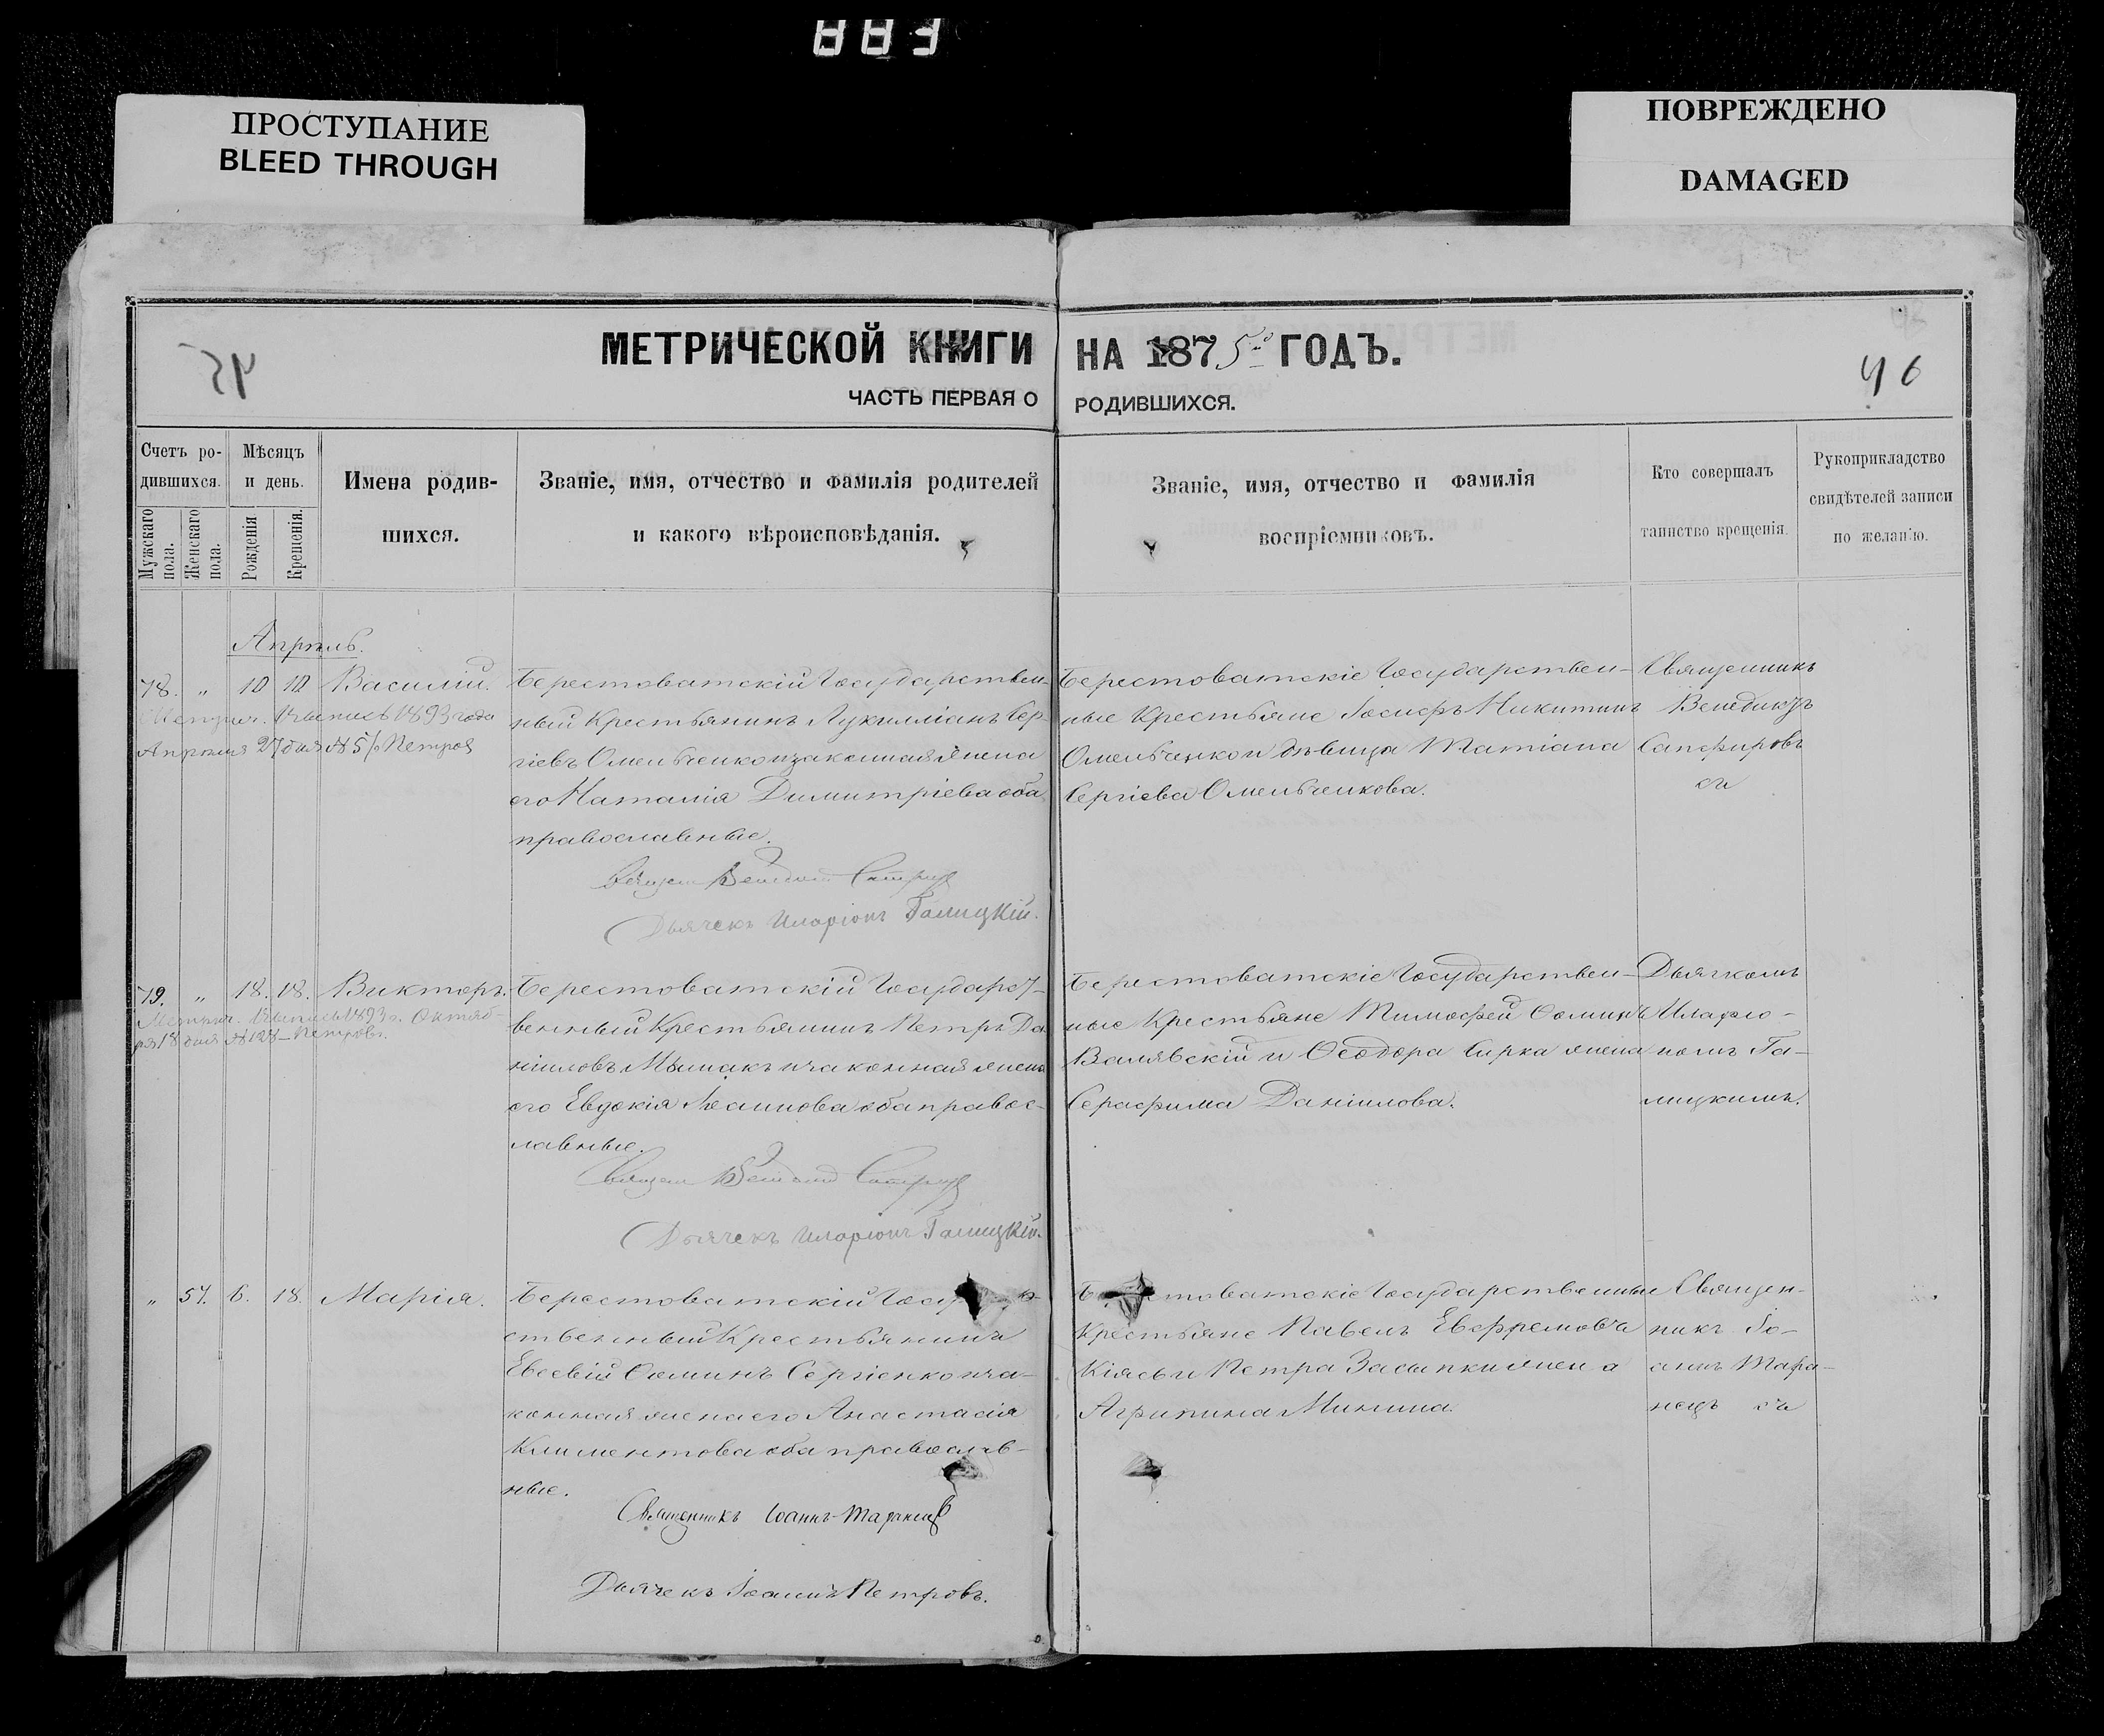 883
ПРОСТУПАНИЕ
BLEED THROUGH
ПОВРЕЖДЕНО
DAMAGED
МЕТРИЧЕСКОЙ КНИГИ НА 1875 ГОДЪ.
46
ЧАСТЬ ПЕРВАЯ О РОДИВШИХСЯ.
Счетъ ро-
дившихся.
Мужскаго пола.
Женскаго пола.
Мѣсяцъ
и день.
Рожденія
Крещенія.
Имена родив-
шихся.
Званіе, имя, отчество и фамилія родителей
и какого вѣроисповѣданія.
Званіе, имя, отчество и фамилія
воспріемниковъ.
Кто совершалъ
таинство крещенія.
Рукоприкладство
свидѣтелей записи
по желанію.
Апрѣль.
78. „ 10 Василій.
Апрѣля 27 дня № 51 Петровъ
Берестоватскій Государствен-
ный Крестьянинъ Лукилліанъ Сер-
гіевъ Омельченко и законная жена
его Наталія Димитріева оба
православные.
Дьячекъ Иларіонъ Галицкій.
Берестоватскіе Государствен-
ные Крестьяне Іосифъ Никитинъ
Омельченко и дѣвица Татіана
Сергіева Омельченкова.
Священникъ
Венедиктъ
Сапфировъ
79. „ 18. 18. Викторъ.
Метрич. Выпись 1893 г. Октяб-
ря 18 дня № 128 Петровъ.
Берестоватскій Государст-
венный Крестьянинъ Петръ Да-
ніиловъ и законная жена
его Евдокія Іоаннова оба правос-
лавные.
Дьячекъ Иларіонъ Галицкій.
Берестоватскіе Государствен-
ные Крестьяне Тимофей Фоминъ
Валявскій и Феодора Сирка жена
Серафима Даніилова.
Дьячкомъ
Иларіо-
номъ Га-
лицкимъ.
„ 57. 6. 18. Марія.
Берестоватскій
ственный Крестьянинъ
Евсевій Фоминъ Сергіенко и за-
конная жена его Анастасія
Климентова оба православ-
ные.
Священникъ Іоаннъ Таранецъ
Дьячекъ Іоаннъ Петровъ.
Берестоватскіе Государственные
Крестьяне Павелъ Евфремовъ
Кіясь и Петра Засыпки жена
Агрипина Минина.
Священ-
никъ Іо-
аннъ Тара-
нецъ